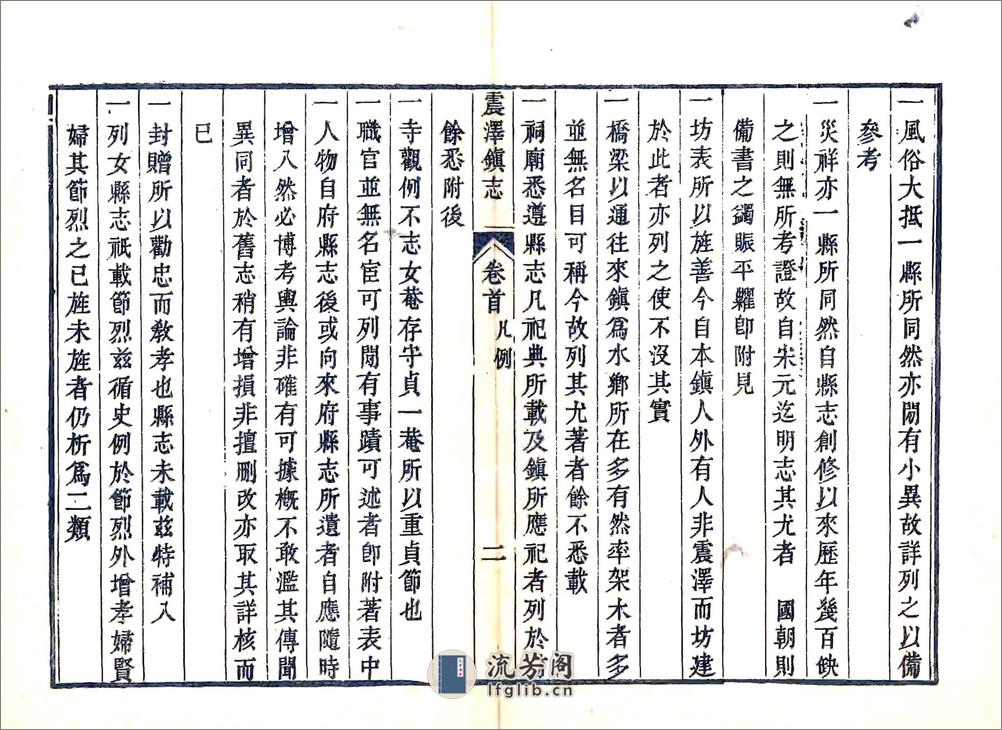 一風俗大抵一縣所同然亦閒有小異故詳列之以備
參考
一災祥亦一縣所同然自縣志創修以來歷年幾百缺
之則無所考證故自宋元迄明志其尤者　國朝則
備書之蠲賑平糶卽附見
一坊表所以旌善今自本鎮人外有人非震澤而坊建
於此者亦列之使不沒其實
一橋梁以通往來鎮爲水鄉所在多有然率架木者多
並無名目可稱今故列其尤著者餘不悉載
一祠廟悉遵縣志凡祀典所載及鎮所應祀者列於
震澤鎮志　卷首　凡例　二
餘悉附後
一寺觀例不志女菴存守貞一菴所以重貞節也
一職官並無名宦可列閒有事蹟可述者卽附著表中
一人物自府縣志後或向來府縣志所遺者自應隨時
增入然必博考輿論非確有可據槪不敢濫其傳聞
異同者於舊志稍有增損非擅刪改亦取其詳核而
已
一封贈所以勸忠而敎孝也縣志未載茲特補入
一列女縣志祇載節烈茲循史例於節烈外增孝婦賢
婦其節烈之已旌未旌者仍析爲二類
流芳阁
lfglib.cn